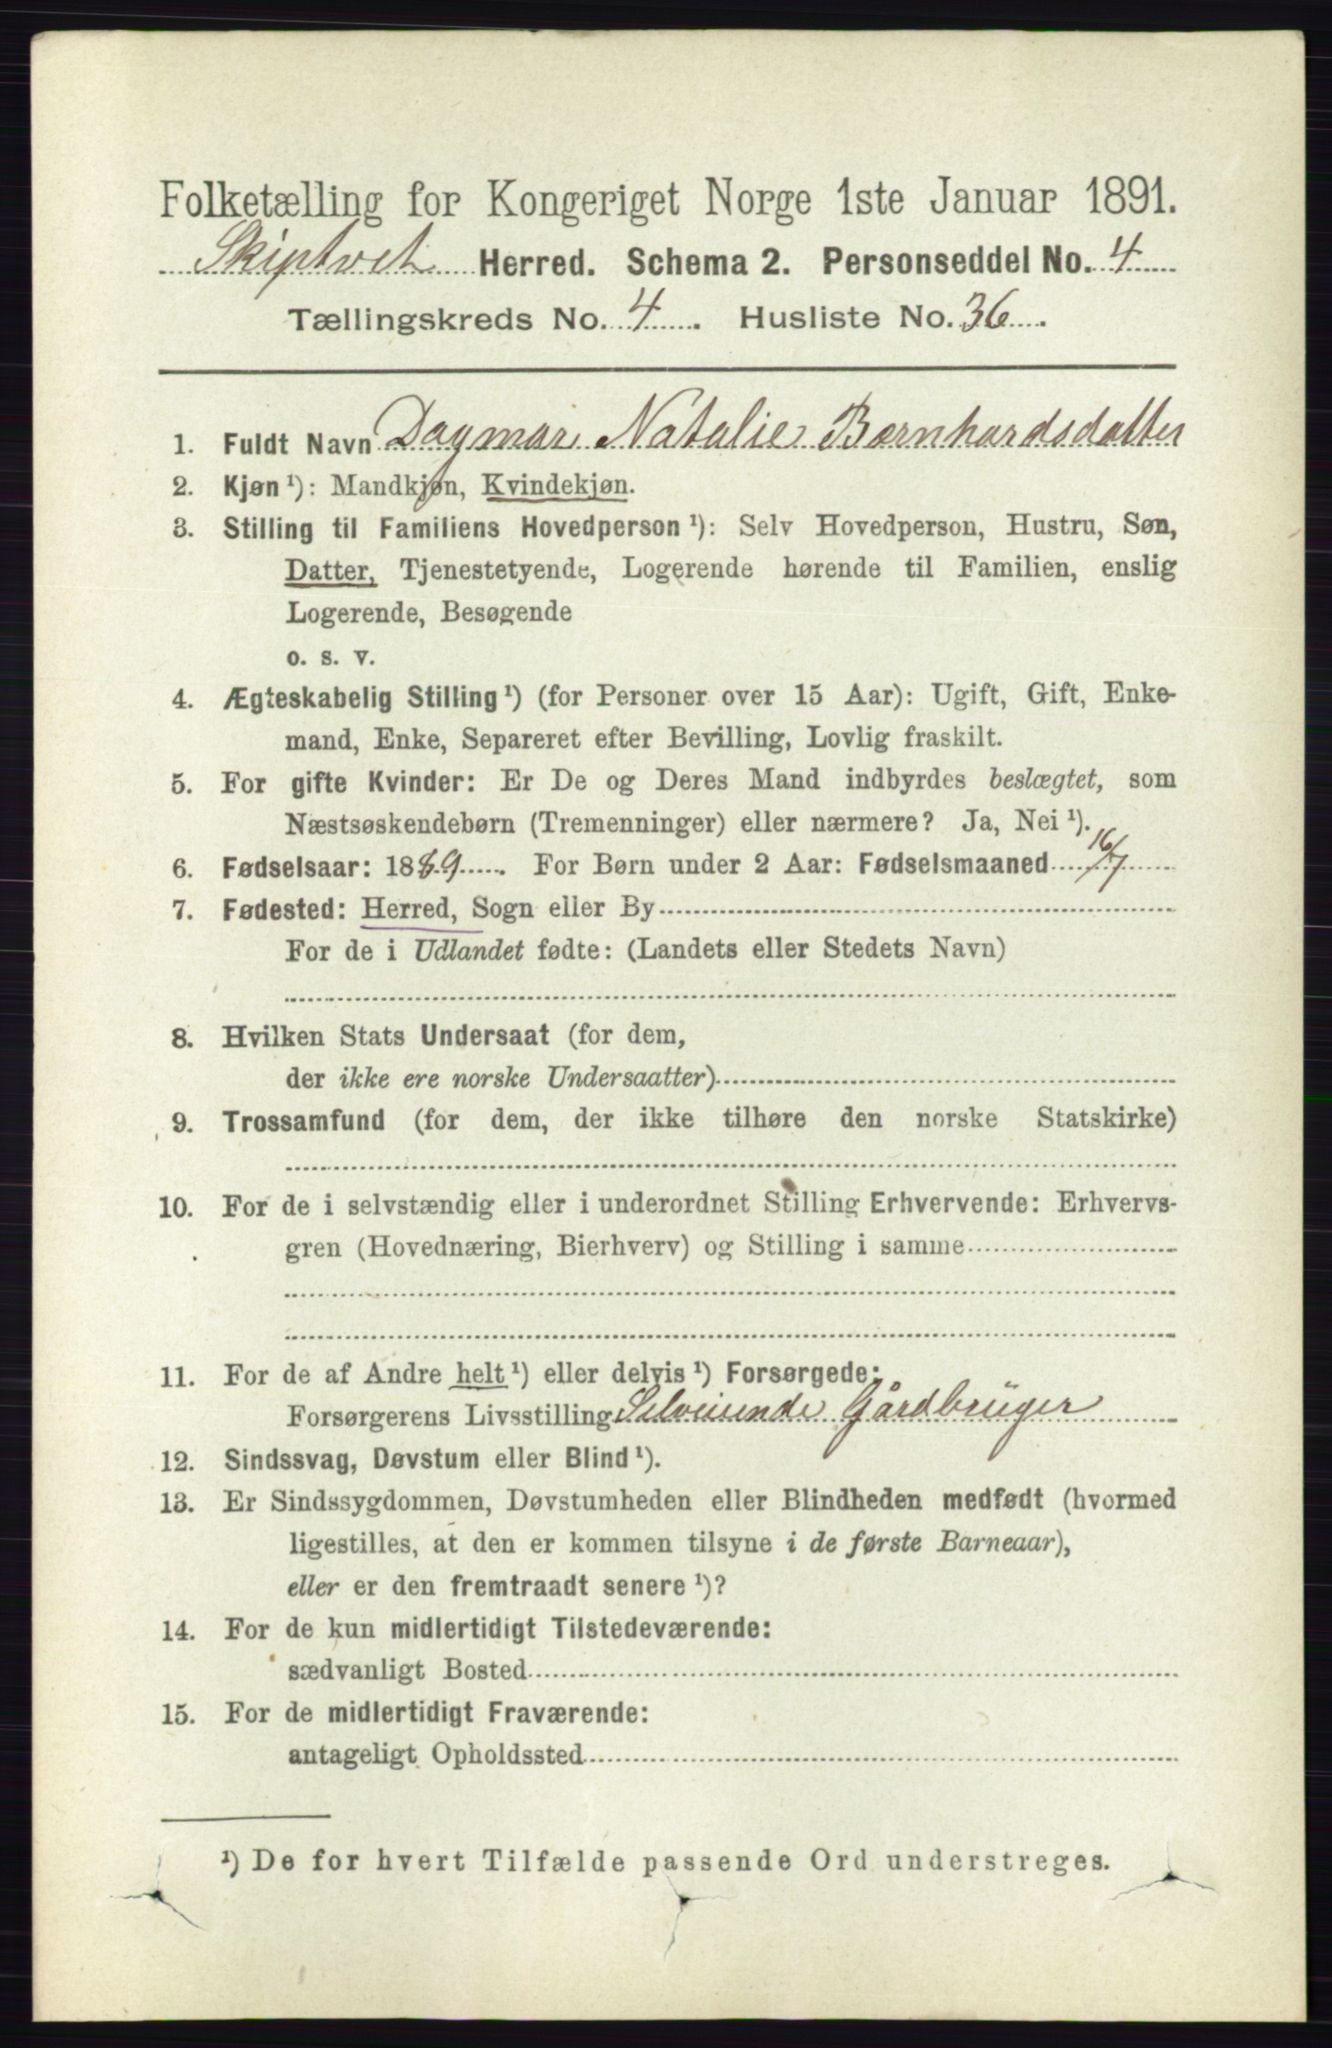 Folketælling for Kongeriget Norge 1ste Januar 1891.
Skiptvet Herred. Schema 2. Personseddel No. 4
Tællingskreds No. 4. Husliste No. 36.
1. Fuldt Navn Dagmar Natalie Bernhardsdatter
2. Kjøn ¹): Mandkjøn, Kvindekjøn.
3. Stilling til Familiens Hovedperson ¹): Selv Hovedperson, Hustru, Søn,
Datter, Tjenestetyende, Logerende hørende til Familien, enslig
Logerende, Besøgende
o. s. v.
4. Ægteskabelig Stilling ¹) (for Personer over 15 Aar): Ugift, Gift, Enke-
mand, Enke, Separeret efter Bevilling, Lovlig fraskilt.
5. For gifte Kvinder: Er De og Deres Mand indbyrdes beslægtet, som
Næstsøskendebørn (Tremenninger) eller nærmere? Ja, Nei ¹).
6. Fødselsaar: 1889. For Børn under 2 Aar: Fødselsmaaned 16/7
7. Fødested: Herred, Sogn eller By
For de i Udlandet fødte: (Landets eller Stedets Navn)
8. Hvilken Stats Undersaat (for dem,
der ikke ere norske Undersaatter)
9. Trossamfund (for dem, der ikke tilhøre den norske Statskirke)
10. For de i selvstændig eller i underordnet Stilling Erhvervende: Erhvervs-
gren (Hovednæring, Bierhverv) og Stilling i samme
11. For de af Andre helt ¹) eller delvis ¹) Forsørgede:
Forsørgerens Livsstilling Selveiende Gårdbrüger
12. Sindssvag, Døvstum eller Blind ¹).
13. Er Sindssygdommen, Døvstumheden eller Blindheden medfødt (hvormed
ligestilles, at den er kommen tilsyne i de første Barneaar),
eller er den fremtraadt senere ¹)?
14. For de kun midlertidigt Tilstedeværende:
sædvanligt Bosted
15. For de midlertidigt Fraværende:
antageligt Opholdssted
¹) De for hvert Tilfælde passende Ord understreges.